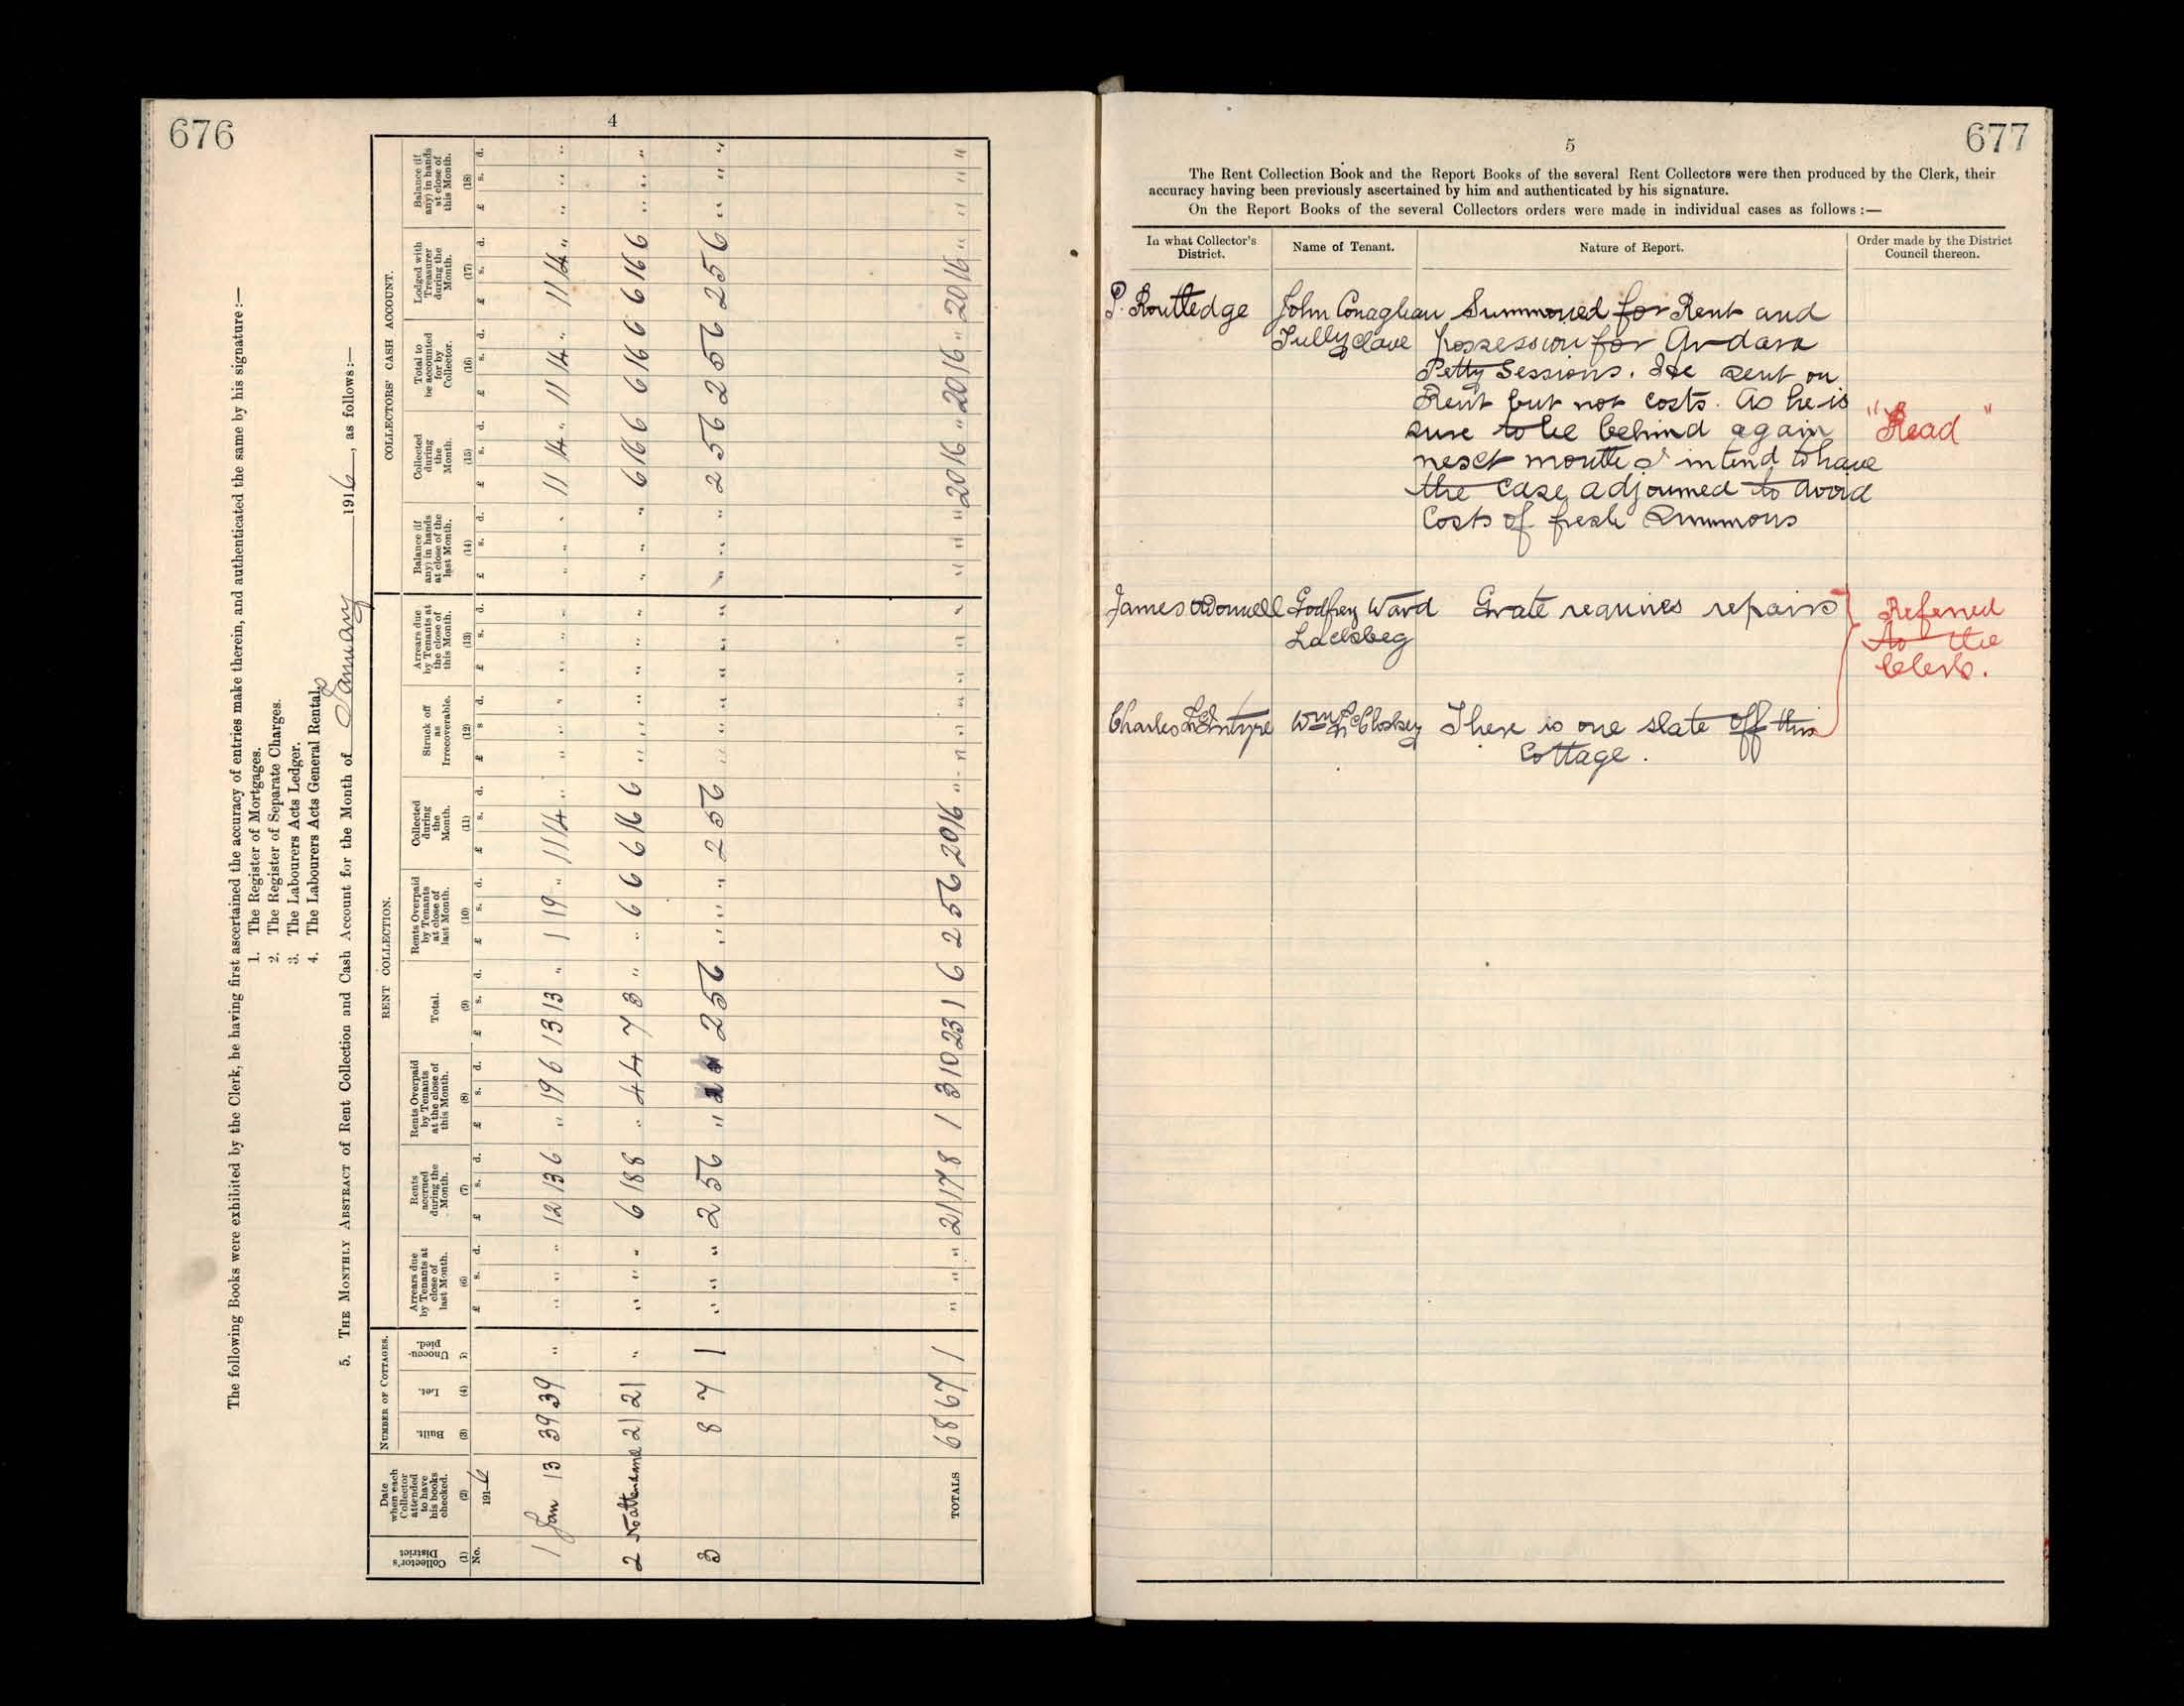 676
4
The following Books were exhibited by the Clerk, he having first ascertained the accuracy of entries make therein, and authenticated the same by his signature:—
1. The Register of Mortgages.
2. The Register of Separate Charges.
3. The Labourers Acts Ledger.
4. The Labourers Acts General Rental.
5. THE MONTHLY ABSTRACT of Rent Collection and Cash Account for the Month of January 1916, as follows:—
NUMBER OF COTTAGES. RENT COLLECTION. COLLECTORS' CASH ACCOUNT.
Collector's District (1) No.
Date when each Collector attended to have his books checked. (2) 1916
Built. (3)
Let. (4)
Unoccupied. 5)
Arrears due by Tenants at close of last Month. (6) £ s. d.
Rents accrued during the Month. (7) £ s. d.
Rents Overpaid by Tenants at the close of this Month. (8) £ s. d.
Total. (9) £ s. d.
Rents Overpaid by Tenants at close of last Month. (10) £ s. d.
Collected during the Month. (11) £ s. d.
Struck off as Irrecoverable. (12) £ s d.
Arrears due by Tenants at the close of this Month. (13) £ s. d.
Balance (if any) in hands at close of the last Month. (14) £ s. d.
Collected during the Month. (15) £ s. d.
Total to be accounted for by Collector. (16) £ s. d.
Lodged with Treasurer during the Month. (17) £ s. d.
Balance (if any) in hands at close of this Month. (18) £ s. d.
1 Jan 13 39 39 " " " " 12 13 6 " 19 6 13 13 " 1 19 " 11 14 " " " " " " " " " " 11 14 " 11 14 " 11 14 " " " "
2 No attendance 21 21 " " " " 6 18 8 " 4 4 7 3 " " 6 6 6 16 6 " " " " " " " " " 6 16 6 6 16 6 6 16 6 " " "
3 8 7 1 " " " 2 5 6 " 2 5 6 " " " 2 5 6 " " " " " " " " " 2 5 6 2 5 6 2 5 6 " " "
TOTALS 68 67 1 " " " 21 17 8 1 3 10 23 1 6 2 5 6 20 16 " " " " " " " " " " 20 16 " 20 16 " 20 16 " " " "
677
5
The Rent Collection Book and the Report Books of the several Rent Collectors were then produced by the Clerk, their
accuracy having been previously ascertained by him and authenticated by his signature.
On the Report Books of the several Collectors orders were made in individual cases as follows:—
In what Collector's District. Name of Tenant. Nature of Report. Order made by the District Council thereon.
P. Routledge John Conaghan Summoned for Rent and
Tullyclave Possession for Ardara
Petty Sessions. He sent on
Rent but not costs. As he is
sure to be behind again "Read"
next month I intend to have
the case adjourned to avoid
Costs of fresh Summons
James O'Donnell Godfrey Ward Grate requires repairs Referred
to the
Clerk.
Charles McIntyre Wm McCloskey There is one slate off this
Cottage.